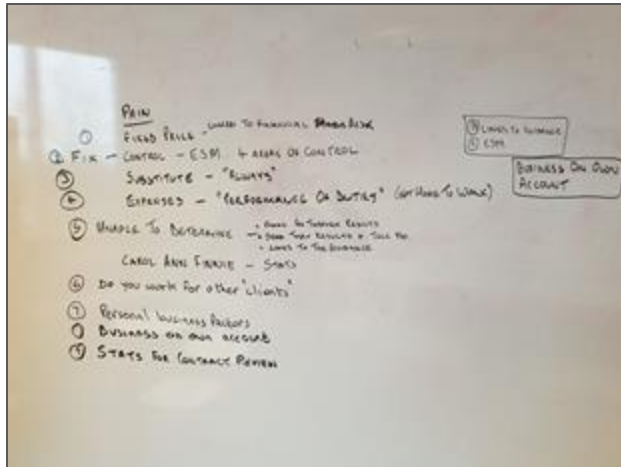 PAIN
① FIXED PRICE - LINKED TO FINANCIAL RISK
② FIX - CONTROL - ESM 4 AREAS OF CONTROL
③ SUBSTITUTE - "ALWAYS"
④ EXPENSES - "PERFORMANCE OF DUTIES" (NOT HOME TO WORK)
⑤ UNABLE TO DETERMINE
LINKS TO THE GUIDANCE
CAROL ANN FINNIE - STATS
⑥ Do you work for other "clients"
⑦ Personal business factors
BUSINESS ON OWN ACCOUNT
⑨ STATS FOR CONTRACT REVIEW
LINKS TO GUIDANCE
ESM
BUSINESS ON OWN
ACCOUNT